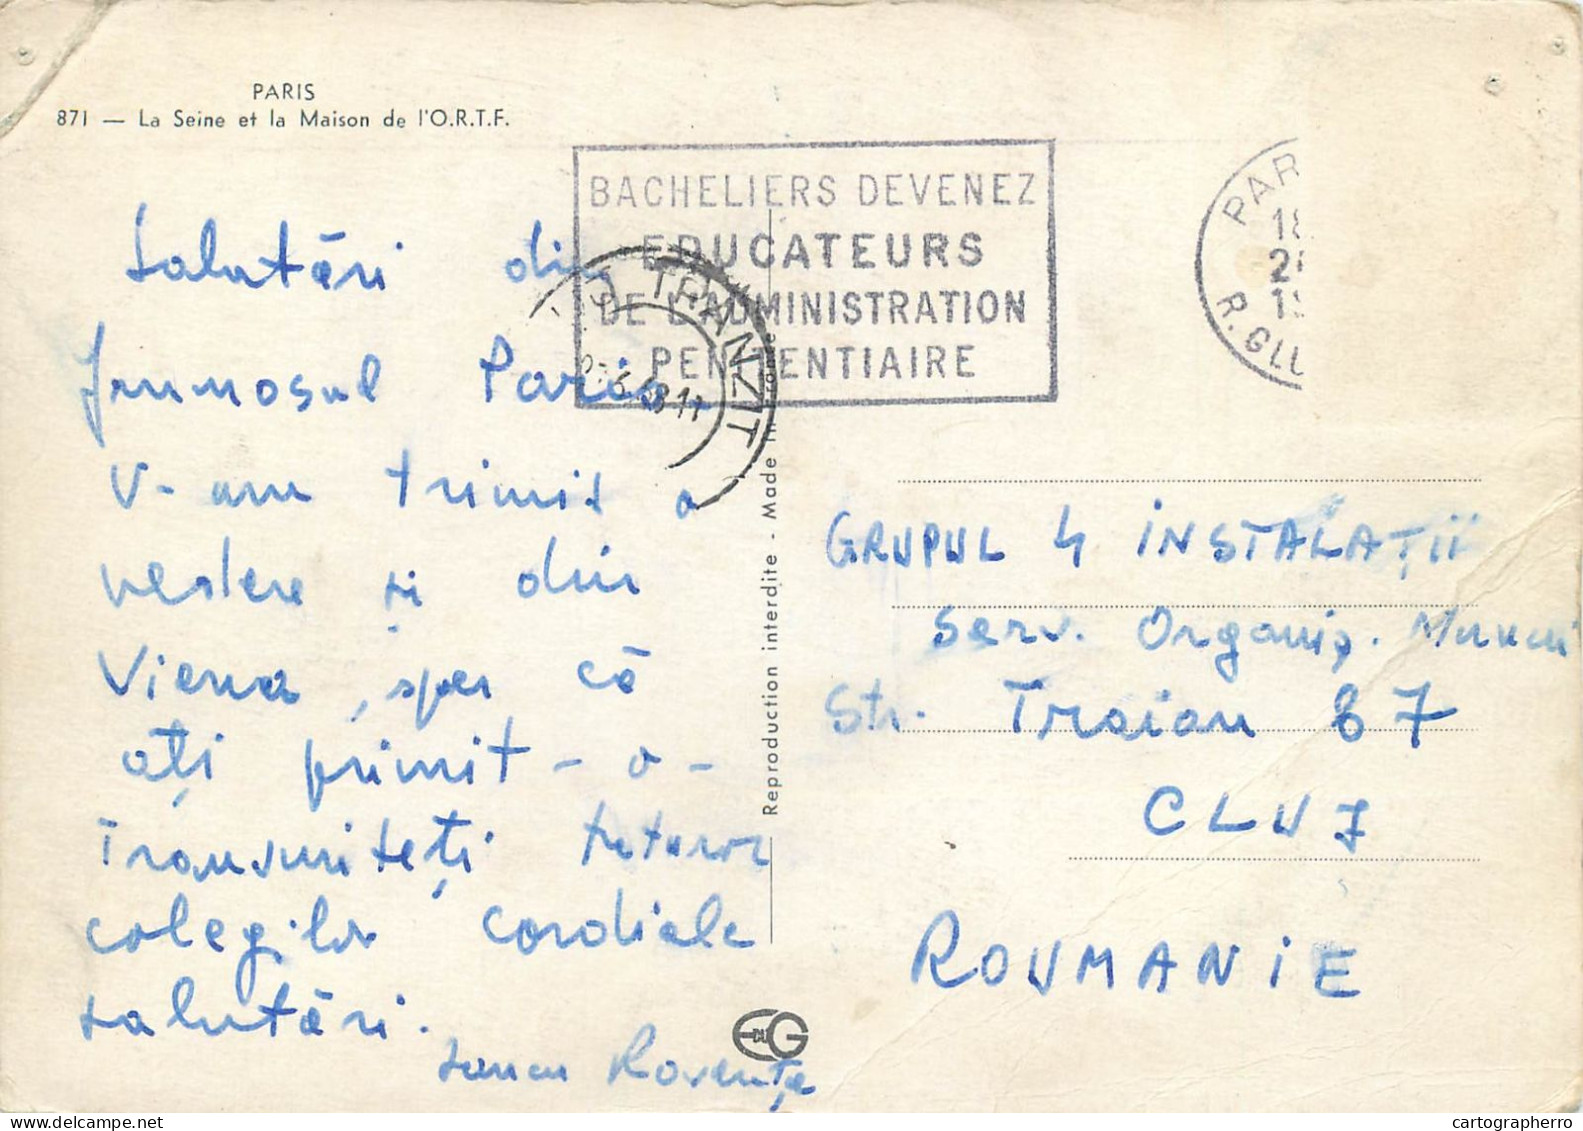 PARIS
871 — La Seine et la Maison de l'O.R.T.F.
BACHELIERS DEVENEZ
EDUCATEURS
DE L'ADMINISTRATION
PENITENTIAIRE
PAR
18
R. GLU
J TRANZIT
Salutări din
frumosul Paris.
V-am trimis o
vedere și din
Viena, sper că
ați primit-o-
Transmiteți tuturor
colegilor cordiale
salutări.
Iancu Rovența
Reproduction interdite - Made in
GRUPUL 4 INSTALAȚII
Serv. Organiz. Muncii
Str. Traian 67
CLUJ
ROUMANIE
cartographerro